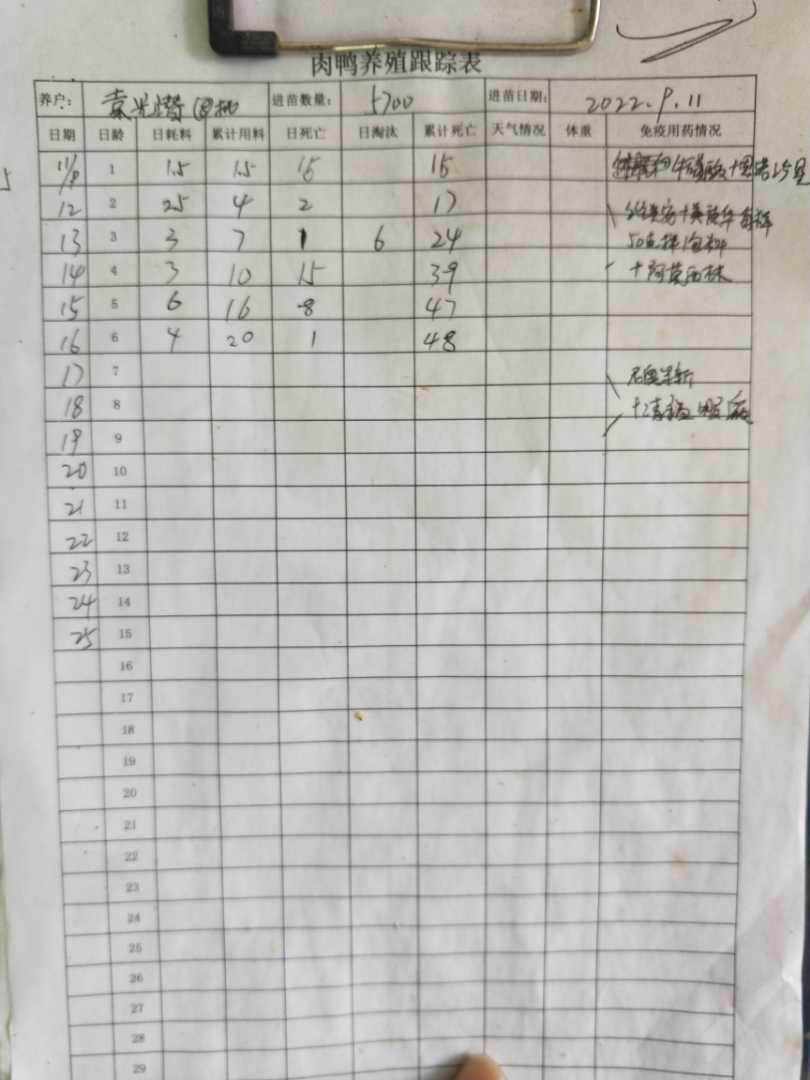 肉鸭养殖跟踪表
养户: 袁光 进苗数量: 5700 进苗日期: 2022.9.11
日期 日龄 日耗料 累计用料 日死亡 日淘汰 累计死亡 天气情况 体重 免疫用药情况
11/9 1 1.5 1.5 15 15
12 2 25 4 2 17
13 3 3 7 1 6 24
50克拌1包料
14 4 3 10 15 39
+阿莫西林
15 5 6 16 8 47
16 6 4 20 1 48
17 7
18 8
19 9
20 10
21 11
22 12
23 13
24 14
25 15
16
17
18
19
20
21
22
23
24
25
26
27
28
29